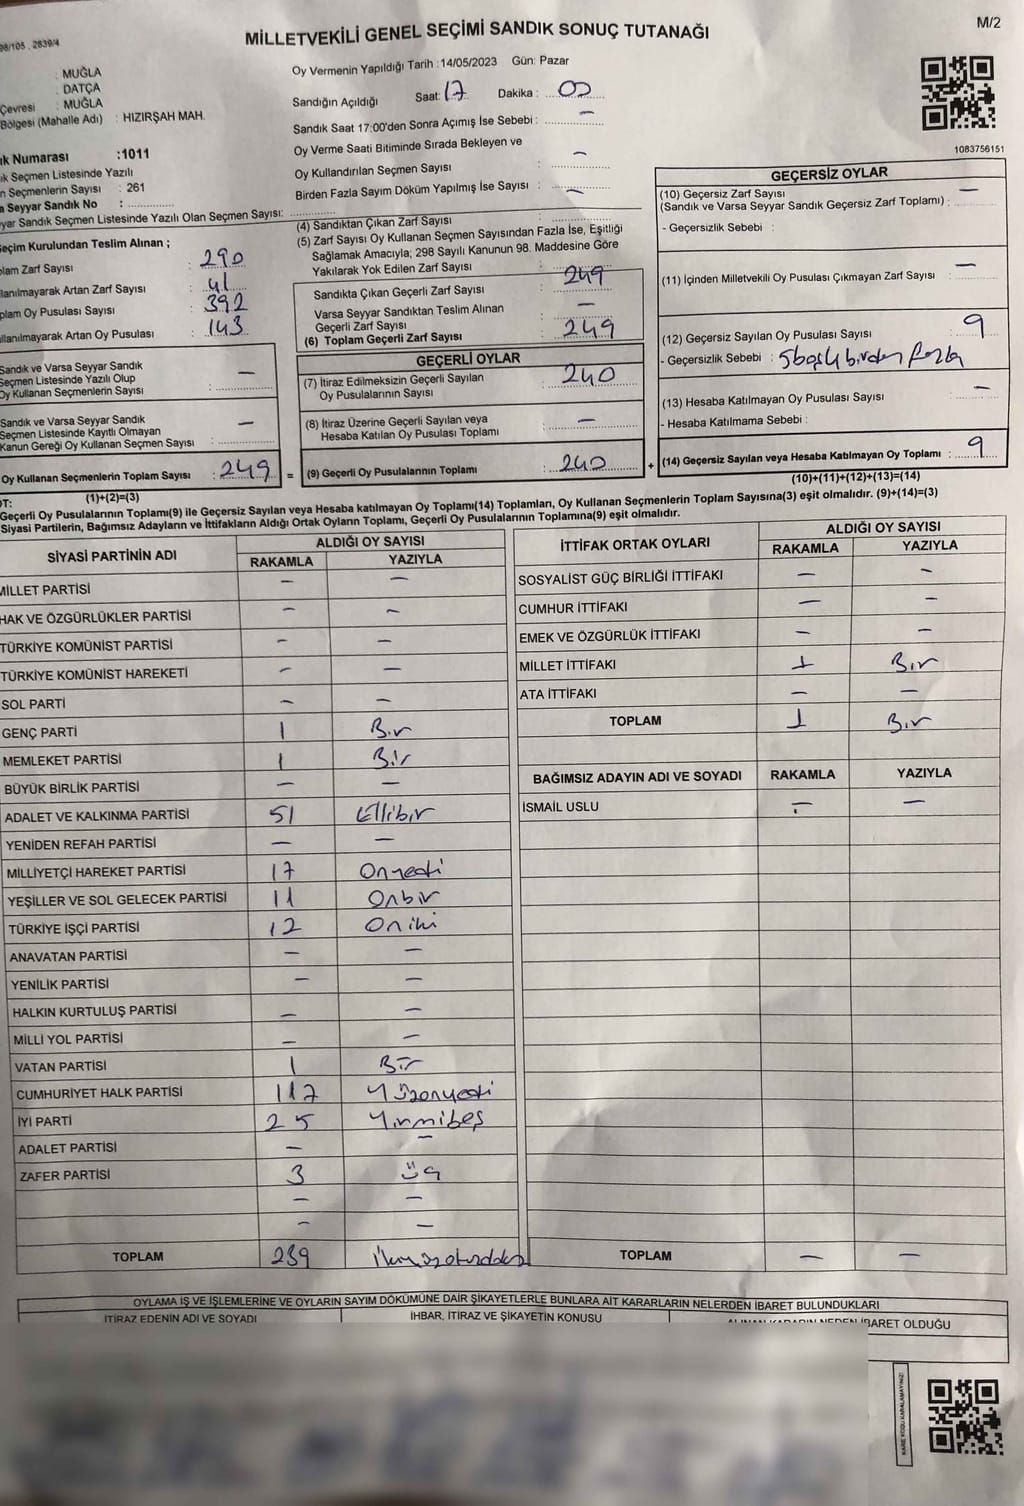 98/105 , 2839/4
MİLLETVEKİLİ GENEL SEÇİMİ SANDIK SONUÇ TUTANAĞI
M/2
: MUĞLA
: DATÇA
Çevresi : MUĞLA
Bölgesi (Mahalle Adı) : HIZIRŞAH MAH.
ık Numarası :1011
ık Seçmen Listesinde Yazılı
n Seçmenlerin Sayısı : 261
a Seyyar Sandık No :
yyar Sandık Seçmen Listesinde Yazılı Olan Seçmen Sayısı:
Oy Vermenin Yapıldığı Tarih :14/05/2023 Gün: Pazar
Sandığın Açıldığı Saat: 17 Dakika : 00
Sandık Saat 17:00'den Sonra Açımış İse Sebebi : —
Oy Verme Saati Bitiminde Sırada Bekleyen ve
Oy Kullandırılan Seçmen Sayısı : —
Birden Fazla Sayım Döküm Yapılmış İse Sayısı : —
1083756151
eçim Kurulundan Teslim Alınan ;
plam Zarf Sayısı : 290
llanılmayarak Artan Zarf Sayısı : 41
plam Oy Pusulası Sayısı : 392
llanılmayarak Artan Oy Pusulası : 143
Sandık ve Varsa Seyyar Sandık
Seçmen Listesinde Yazılı Olup
Oy Kullanan Seçmenlerin Sayısı : —
Sandık ve Varsa Seyyar Sandık
Seçmen Listesinde Kayıtlı Olmayan
Kanun Gereği Oy Kullanan Seçmen Sayısı : —
Oy Kullanan Seçmenlerin Toplam Sayısı : 249 =
(1)+(2)=(3)
(4) Sandıktan Çıkan Zarf Sayısı :
(5) Zarf Sayısı Oy Kullanan Seçmen Sayısından Fazla İse, Eşitliği
Sağlamak Amacıyla; 298 Sayılı Kanunun 98. Maddesine Göre
Yakılarak Yok Edilen Zarf Sayısı :
Sandıkta Çıkan Geçerli Zarf Sayısı : 249
Varsa Seyyar Sandıktan Teslim Alınan
Geçerli Zarf Sayısı : —
(6) Toplam Geçerli Zarf Sayısı : 249
GEÇERLİ OYLAR
(7) İtiraz Edilmeksizin Geçerli Sayılan
Oy Pusulalarının Sayısı : 240
(8) İtiraz Üzerine Geçerli Sayılan veya
Hesaba Katılan Oy Pusulası Toplamı : —
(9) Geçerli Oy Pusulalarının Toplamı : 240 +
GEÇERSİZ OYLAR
(10) Geçersiz Zarf Sayısı
(Sandık ve Varsa Seyyar Sandık Geçersiz Zarf Toplamı) : —
- Geçersizlik Sebebi :
(11) İçinden Milletvekili Oy Pusulası Çıkmayan Zarf Sayısı : —
(12) Geçersiz Sayılan Oy Pusulası Sayısı : 9
- Geçersizlik Sebebi : birden fazla
(13) Hesaba Katılmayan Oy Pusulası Sayısı : —
- Hesaba Katılmama Sebebi :
(14) Geçersiz Sayılan veya Hesaba Katılmayan Oy Toplamı : 9
(10)+(11)+(12)+(13)=(14)
OT:
Geçerli Oy Pusulalarının Toplamı(9) ile Geçersiz Sayılan veya Hesaba katılmayan Oy Toplamı(14) Toplamları, Oy Kullanan Seçmenlerin Toplam Sayısına(3) eşit olmalıdır. (9)+(14)=(3)
Siyasi Partilerin, Bağımsız Adayların ve İttifakların Aldığı Ortak Oyların Toplamı, Geçerli Oy Pusulalarının Toplamına(9) eşit olmalıdır.
SİYASİ PARTİNİN ADI ALDIĞI OY SAYISI
RAKAMLA YAZIYLA
MİLLET PARTİSİ — —
HAK VE ÖZGÜRLÜKLER PARTİSİ — —
TÜRKİYE KOMÜNİST PARTİSİ — —
TÜRKİYE KOMÜNİST HAREKETİ — —
SOL PARTİ — —
GENÇ PARTİ 1 Bir
MEMLEKET PARTİSİ 1 Bir
BÜYÜK BİRLİK PARTİSİ — —
ADALET VE KALKINMA PARTİSİ 51 Ellibir
YENİDEN REFAH PARTİSİ — —
MİLLİYETÇİ HAREKET PARTİSİ 17 Onyedi
YEŞİLLER VE SOL GELECEK PARTİSİ 11 Onbir
TÜRKİYE İŞÇİ PARTİSİ 12 Oniki
ANAVATAN PARTİSİ — —
YENİLİK PARTİSİ — —
HALKIN KURTULUŞ PARTİSİ — —
MİLLİ YOL PARTİSİ — —
VATAN PARTİSİ 1 Bir
CUMHURİYET HALK PARTİSİ 117 Yüzonyedi
İYİ PARTİ 25 Yirmibeş
ADALET PARTİSİ — —
ZAFER PARTİSİ 3 üç
— —
— —
TOPLAM 239 İkiyüzotuzdokuz
İTTİFAK ORTAK OYLARI ALDIĞI OY SAYISI
RAKAMLA YAZIYLA
SOSYALİST GÜÇ BİRLİĞİ İTTİFAKI — —
CUMHUR İTTİFAKI — —
EMEK VE ÖZGÜRLÜK İTTİFAKI — —
MİLLET İTTİFAKI 1 Bir
ATA İTTİFAKI — —
TOPLAM 1 Bir
BAĞIMSIZ ADAYIN ADI VE SOYADI RAKAMLA YAZIYLA
İSMAİL USLU — —
TOPLAM — —
OYLAMA İŞ VE İŞLEMLERİNE VE OYLARIN SAYIM DÖKÜMÜNE DAİR ŞİKAYETLERLE BUNLARA AİT KARARLARIN NELERDEN İBARET BULUNDUKLARI
İTİRAZ EDENİN ADI VE SOYADI İHBAR, İTİRAZ VE ŞİKAYETİN KONUSU ALINAN KARARIN NEDEN İBARET OLDUĞU
KARE KODU KARALAMAYINIZ!